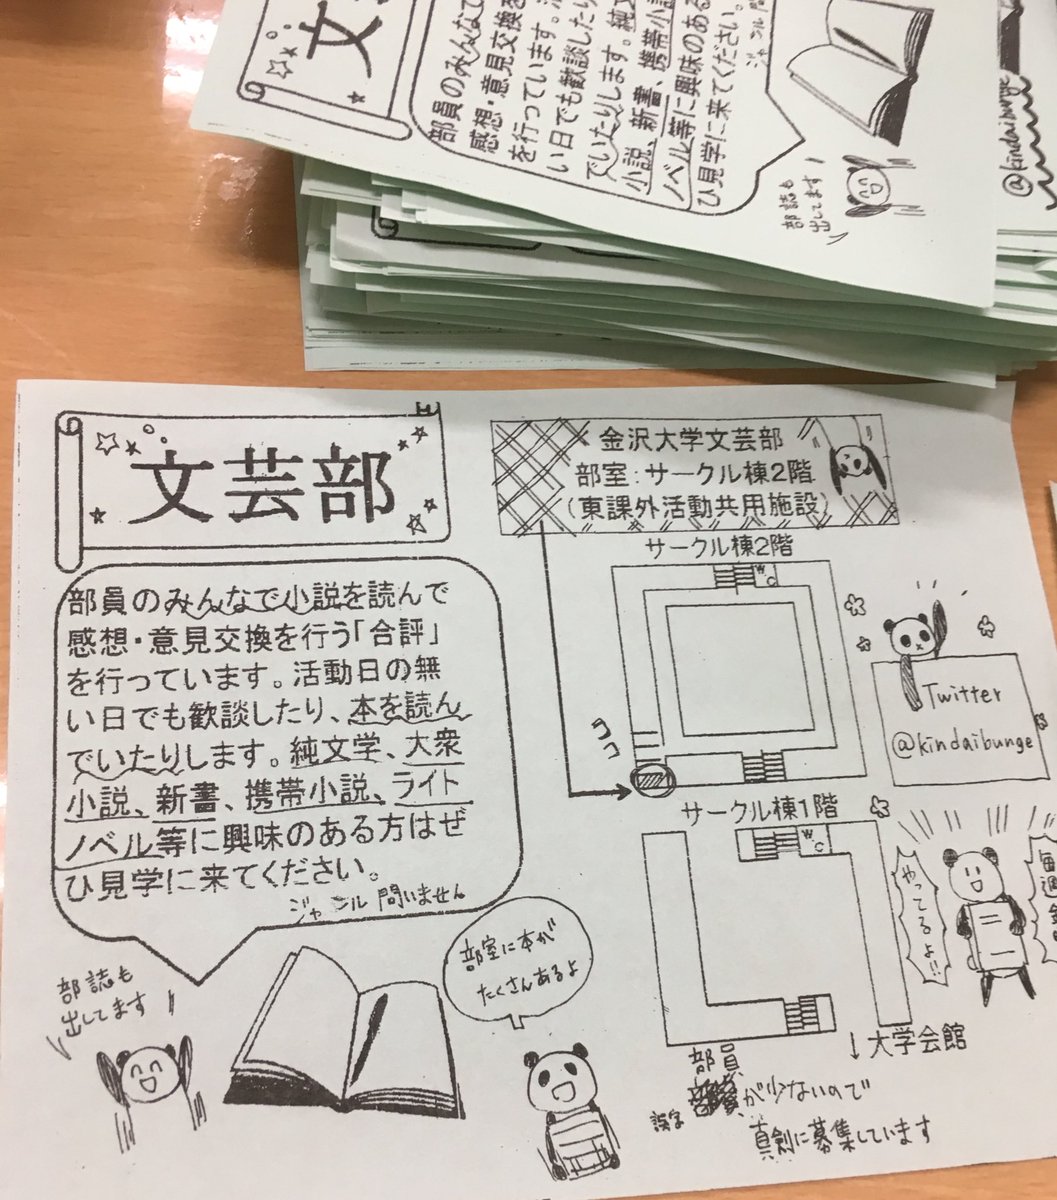 文
部員のみんなで
感想・意見交換を
を行っています。
い日でも歓談したり
でいたりします。純文
小説、新書、携帯小説
ノベル等に興味のある
ひ見学に来てください。
部誌も
出してます!
@kindaibunge
文芸部
部員のみんなで小説を読んで
感想・意見交換を行う「合評」
を行っています。活動日の無
い日でも歓談したり、本を読ん
でいたりします。純文学、大衆
小説、新書、携帯小説、ライト
ノベル等に興味のある方はぜ
ひ見学に来てください。
ジャンル問いません
部誌も
出してます!
部室に本が
たくさんあるよ
金沢大学文芸部
部室:サークル棟2階
(東課外活動共用施設)
サークル棟2階
WC
ココ
Twitter
@kindaibunge
サークル棟1階
WC
やってるよ!!
毎週金
↓大学会館
部員
誤字
が少ないので
真剣に募集しています